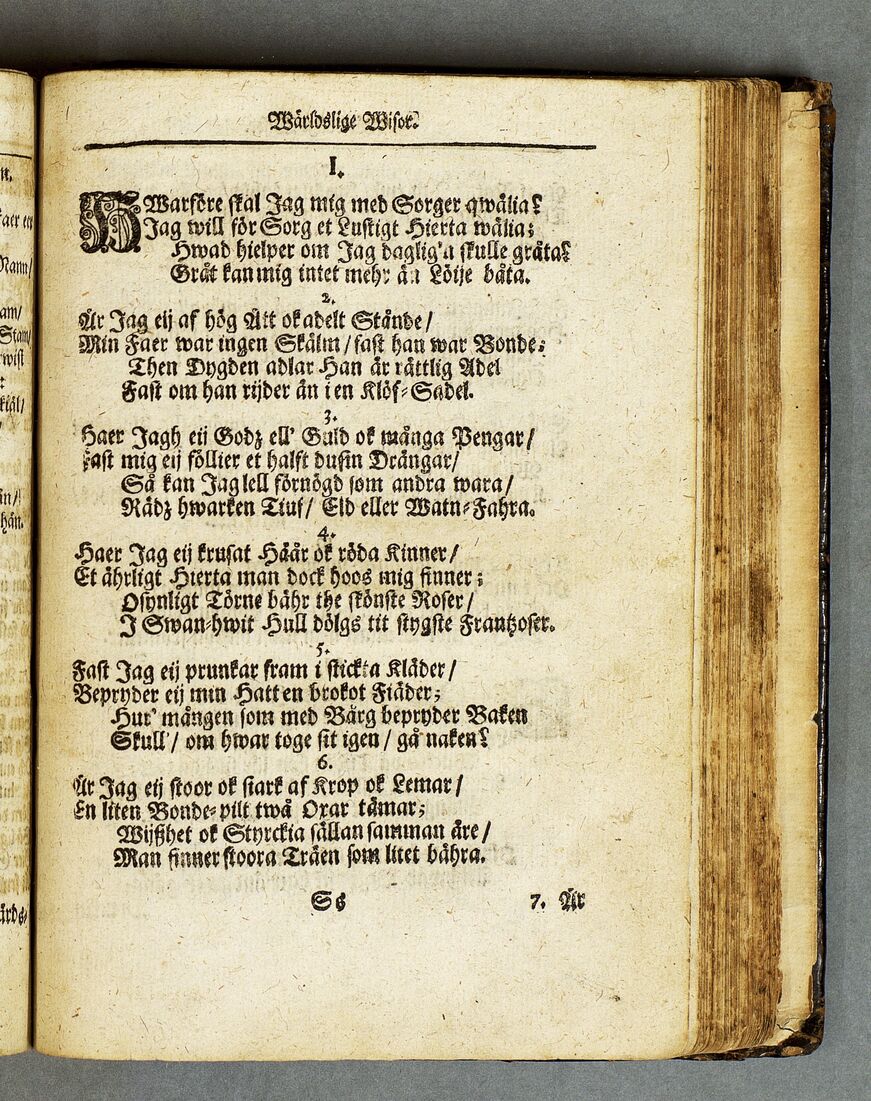 Wärldslige Wisor.
I.
HWarföre skal Jag mig med Sorger qwälia?
Jag will för Sorg et Lustigt Hierta wälia;
Hwad hielper om Jag daglig'n skulle gräta?
Grät kan mig intet mehr än Löije bäta.
2.
Är Jag eij af hög Ätt ok adelt Stånde/
Min Faer war ingen Skälm/ fast han war Bonde;
Then Dygden adlar Han är rättlig Adel
Fast om han rijder än i en Klöf-Sadel.
3.
Haer Jagh eij Godz ell' Guld ok många Pengar/
Fast mig eij föllier et halft dusin Drängar/
Så kan Jag lell förnögd som andra wara/
Rädz hwarken Tiuf/ Eld eller Watn-Fahra.
4.
Haer Jag eij krusat Håår ok röda Kinner/
Et ährligt Hierta man dock hoos mig finner;
Osynligt Törne bähr the skönste Roser/
I Swan-hwit Hull dölgs tit stygste Frantzoser.
5.
Fast Jag eij prunkar fram i stickta Kläder/
Bepryder eij min Hatt en brokot Fiäder;
Hur' mången som med Bärg bepryder Baken
Skull'/ om hwar toge sit igen/ gå naken?
6.
Är Jag eij stoor ok stark af Krop ok Lemar/
En liten Bonde-pilt twå Oxar tämar;
Wijßhet ok Styrckia sällan samman äre/
Man finner stoora Träen som litet bähra.
Ss
7. Är
n.
Nann/
am/
Stam/
wist
kiäl/
än/
hän.
ärds-